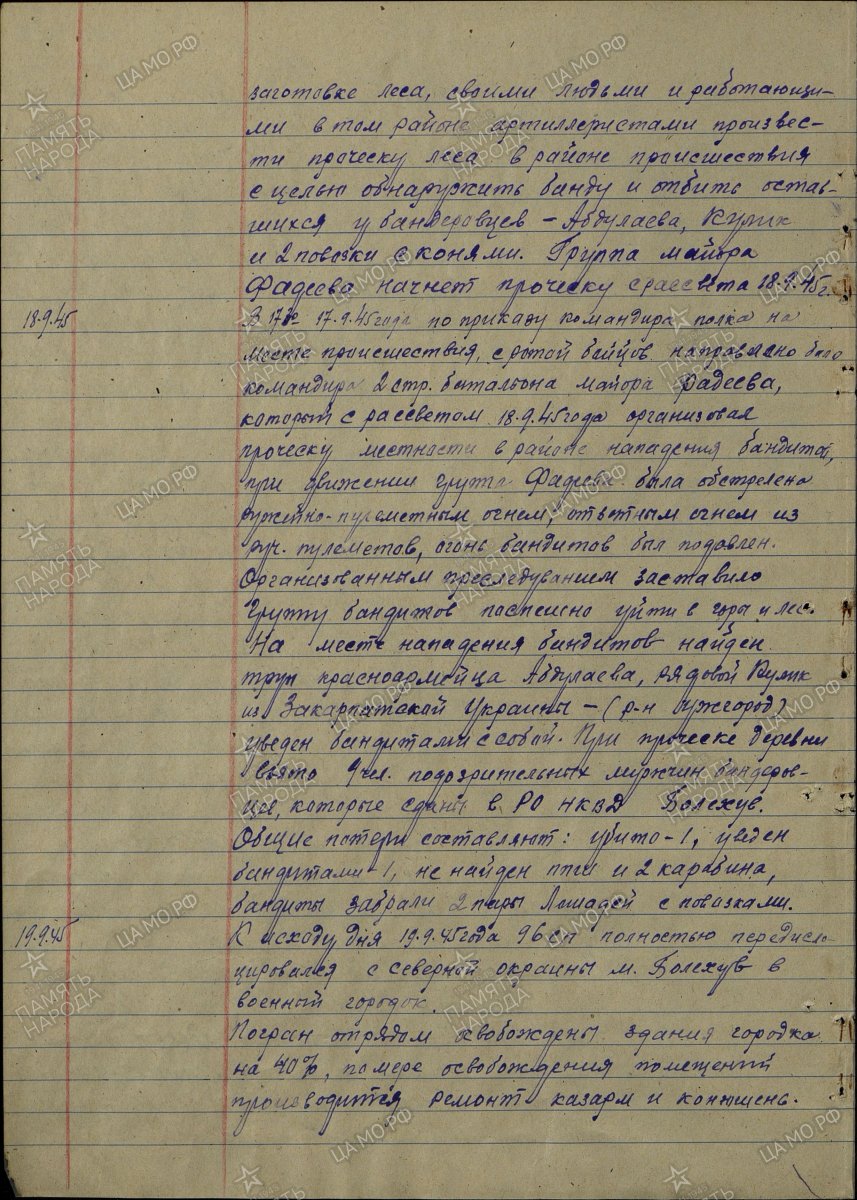 заготовке леса, своими людьми и работающи-
ми в том районе артиллеристами произвес-
ти прочёску леса в районе происшествия
с целью обнаружить банду и отбить остав-
шихся у бандеровцев – Абдулаева, Кулик
и 2 повозки с конями. Группа майора
Фадеева начнет прочёску с рассвета 18.9.45г.
18.9.45
В 17.9.45 года по приказу командира полка на
место происшествия, с ротой бойцов направлено было
командира 2 стр. батальона майора Фадеева,
который с рассветом 18.9.45 года организовал
прочёску местности в районе нападения бандитов,
при движении группа Фадеева была обстрелена
ружейно-пулеметным огнем, ответным огнем из
руч. пулеметов, огонь бандитов был подавлен.
Организованным преследыванием заставило
группу бандитов поспешно уйти в горы и лес.
На месте нападения бандитов найден
труп красноармейца Абдулаева, рядовой Кулик
из Закарпатской Украины – (р-н Ужгород)
уведен бандитами с собой. При прочёске деревни
взято 9 чел. подозрительных мужчин бандеров-
цев, которые сданы в РО НКВД Болехув.
Общие потери составляют: убито - 1, уведен
бандитами - 1, не найден ППШ и 2 карабина,
бандиты забрали 2 пары лошадей с повозками.
19.9.45
К исходу дня 19.9.45 года 96 сп полностью передисло-
цировался с северной окраины м. Болехув в
военный городок.
Погран отрядом освобождены здания городка
на 40%, по мере освобождения помещений
производится ремонт казарм и конюшень.
ПАМЯТЬ НАРОДА
ЦА МО РФ